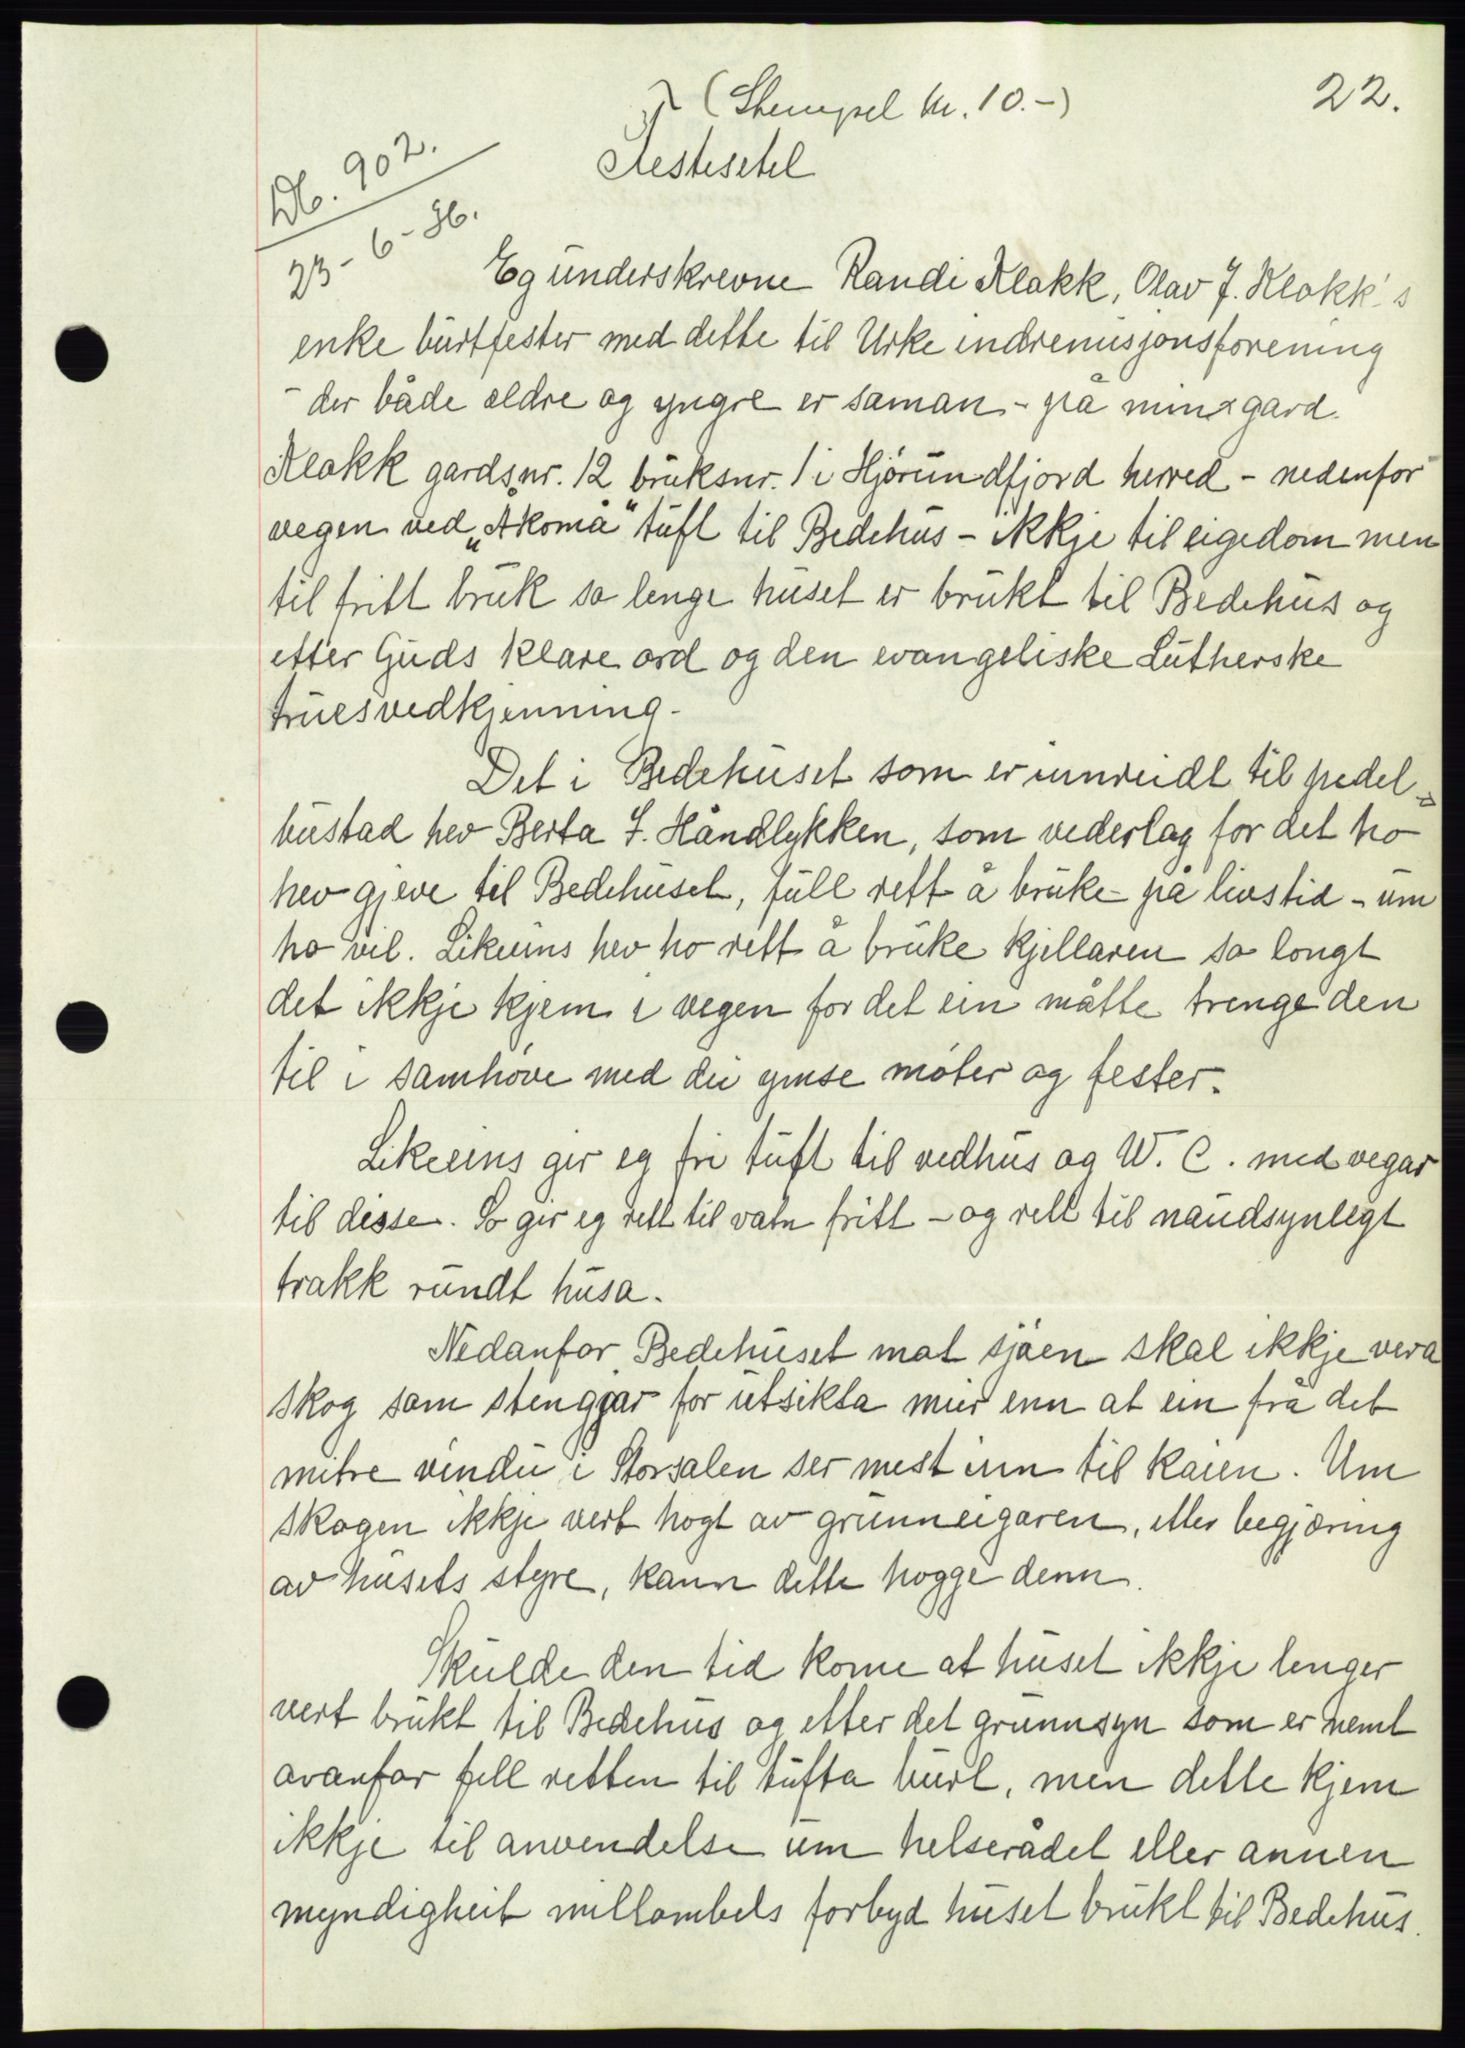 22.
(Stempel kr. 10.-)
Festesetel
Db. 902.
23-6-36.
Eg underskrevne Randi Klokk, Olav J. Klokk's
enke burtfester med dette til Urke indremisjonsforening
- der både eldre og yngre er saman - på min gard
Klokk gardsnr. 12 bruksnr. 1 i Hjørundfjord herred - nedenfor
vegen ved „Åkomå" tuft til Bedehus - ikkje til eigedom men
til fritt bruk so lenge huset er brukt til Bedehus og
etter Guds klare ord og den evangeliske Lutherske
truesvedkjenning.
Det i Bedehuset som er innreidt til pedel-
bustad hev Berta J. Håndlykken, som vederlag for det ho
hev gjeve til Bedehuset, full rett å bruke på livstid - um
ho vil. Likeeins hev ho rett å bruke kjellaren so langt
det ikkje kjem i vegen for det ein måtte trenge den
til i samhøve med dei ymse møter og fester.
Likeeins gir eg fri tuft til vedhus og W. C. med vegar
til disse. So gir eg rett til vatn fritt - og rett til naudsynlegt
trakk rundt husa.
Nedanfor Bedehuset mot sjøen skal ikkje vera
skog som stenggjar for utsikta meir enn at ein frå det
mitre vindu i Storsalen ser mest inn til kaien. Um
skogen ikkje vert hogt av grunneigaren, etter begjæring
av husets styre, kann dette hogge denn.
Skulde den tid kome at huset ikkje lenger
vert brukt til Bedehus og etter det grunnsyn som er nemt
ovanfor fell retten til tufta burt, men dette kjem
ikkje til anvendelse um helserådet eller annen
myndigheit millombels forbyd huset brukt til Bedehus.